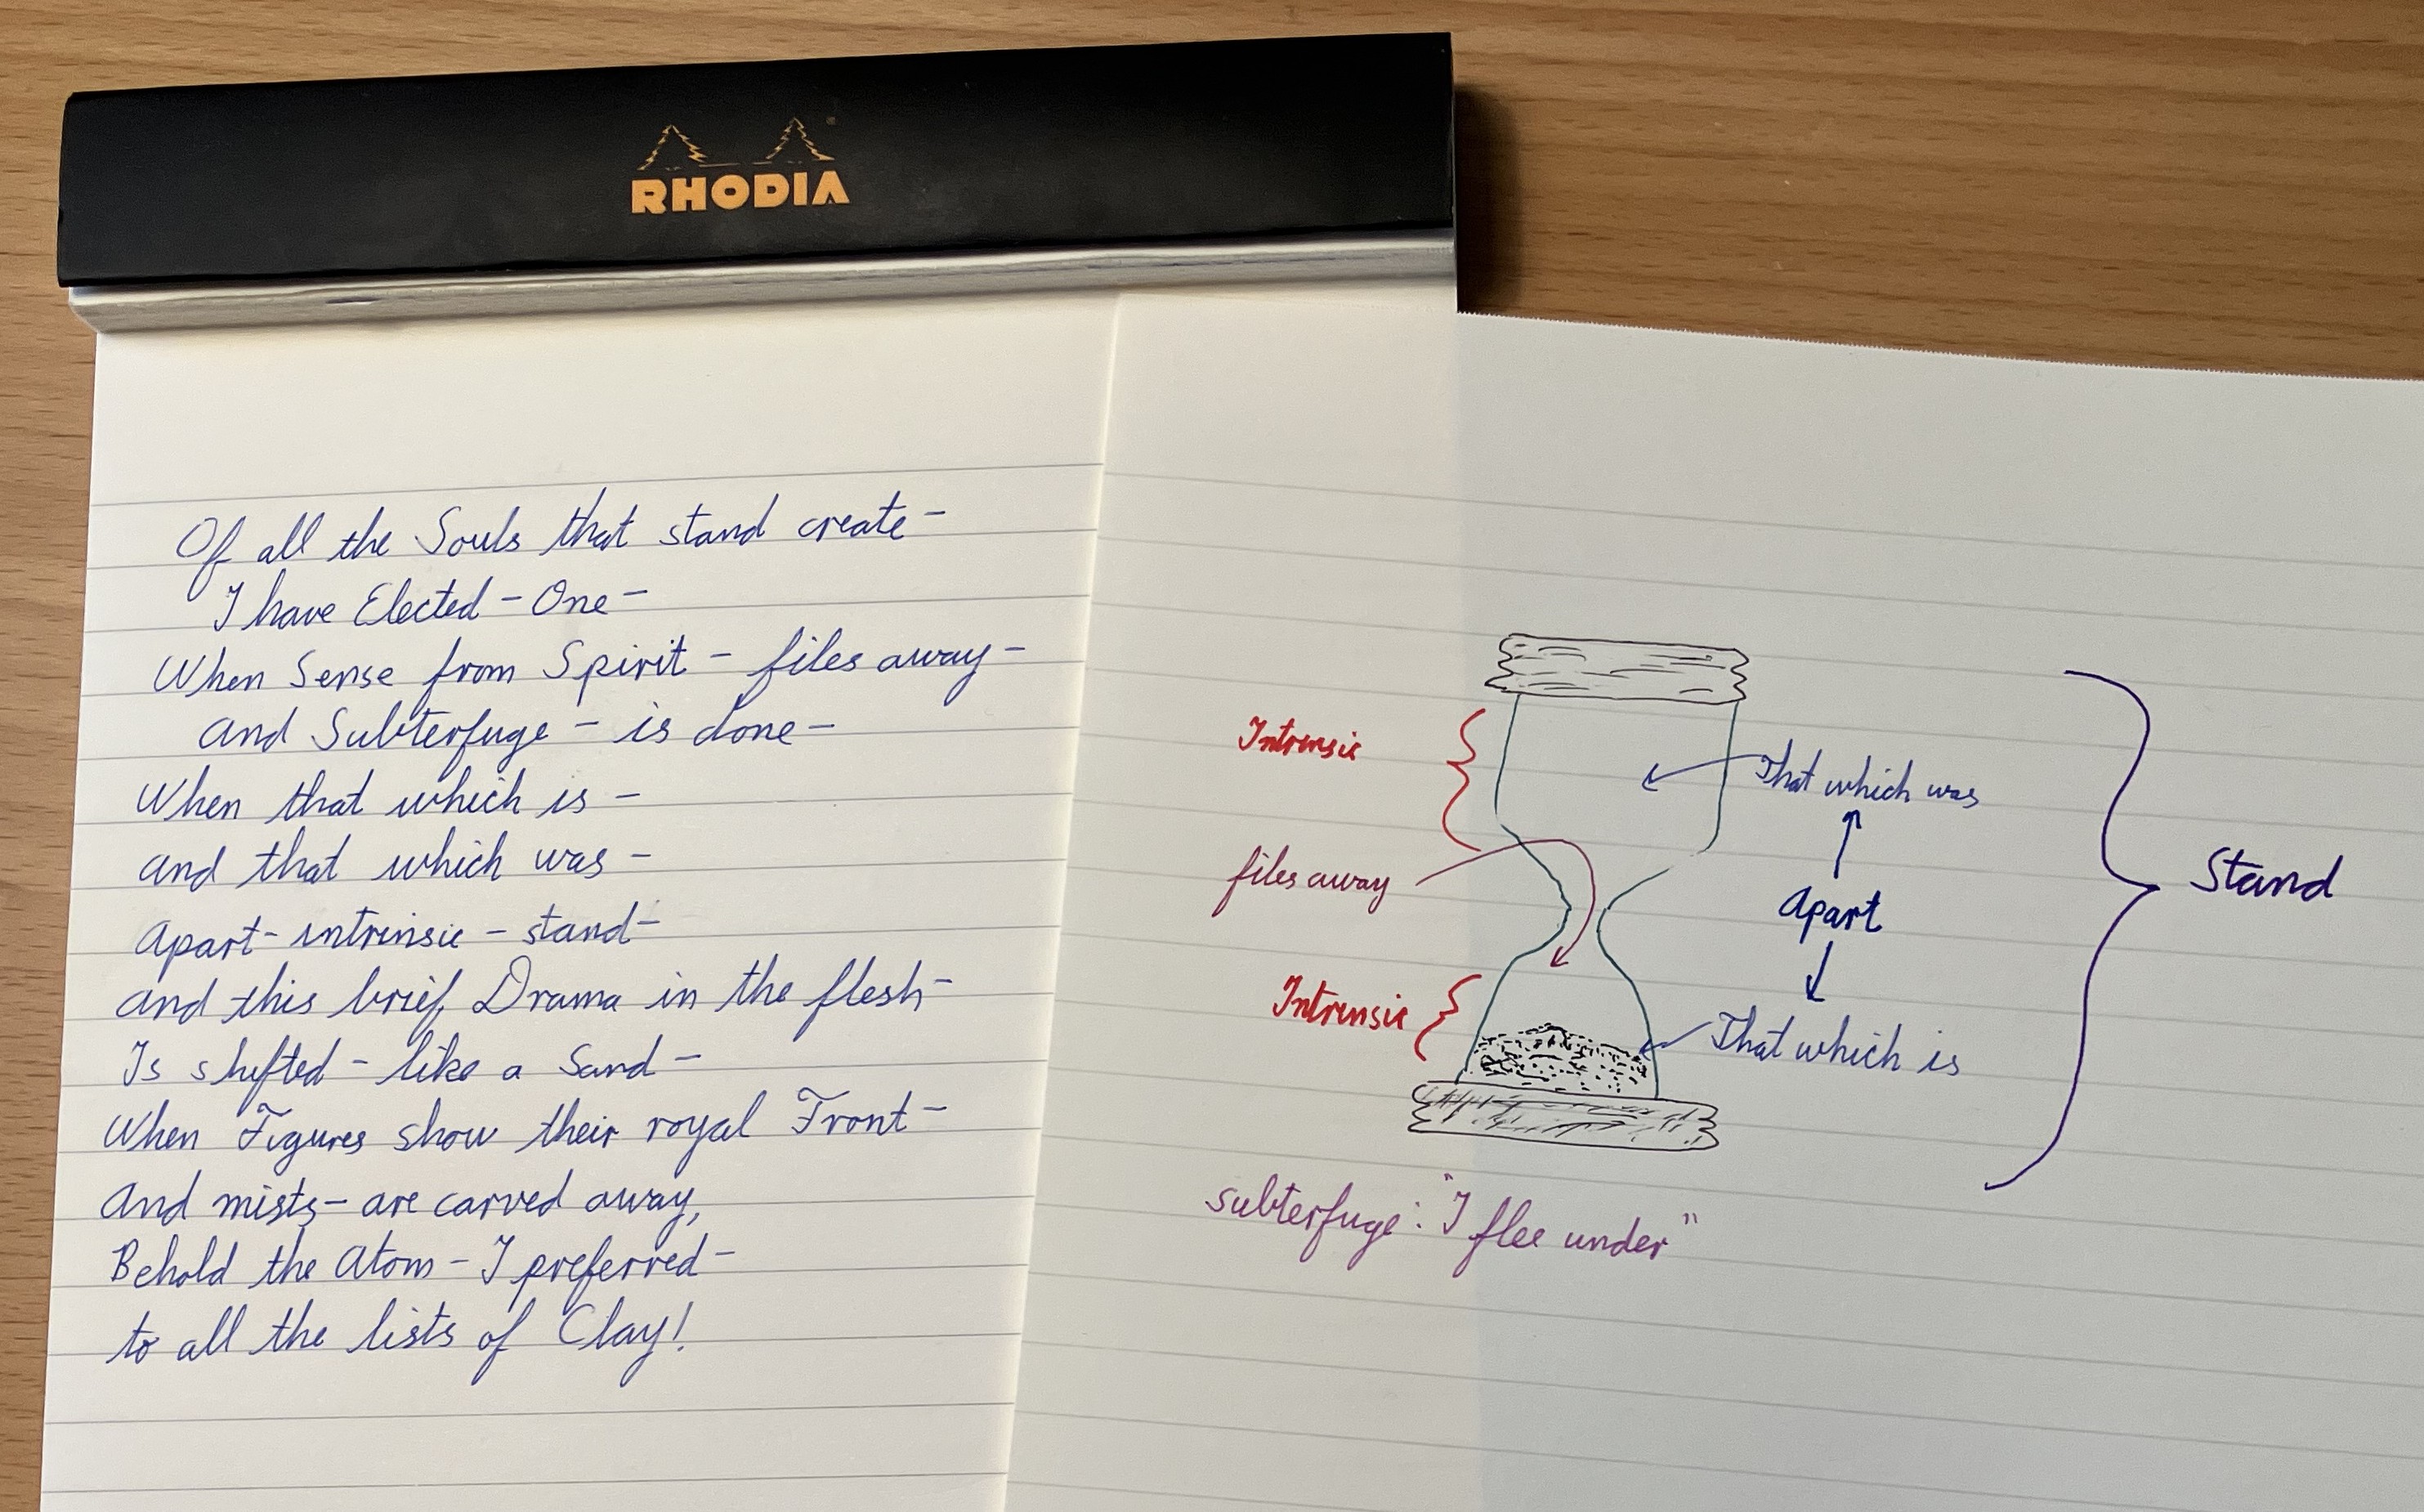 RHODIA
Of all the Souls that stand create –
I have Elected – One –
When Sense from Spirit – files away –
and Subterfuge – is done –
When that which is –
and that which was –
Apart – intrinsic – stand –
and this brief Drama in the flesh –
Is shifted – like a Sand –
When Figures show their royal Front –
And mists – are carved away,
Behold the Atom – I preferred –
to all the lists of Clay!
Intrinsic
That which was
files away
Apart
Stand
Intrinsic
That which is
subterfuge: "I flee under"